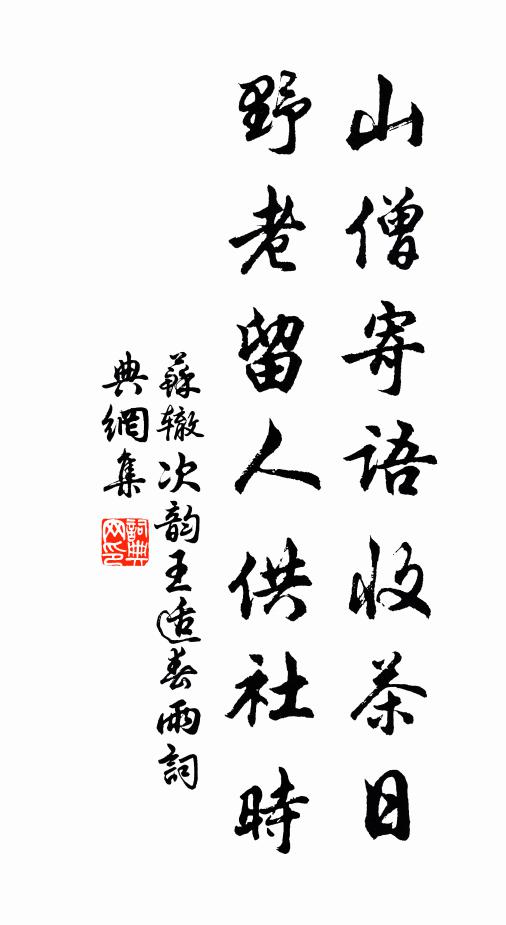 山僧寄語收茶日
野老留人供社時
蘇辙次韵王适春雨詞
典網集
詞典
网印